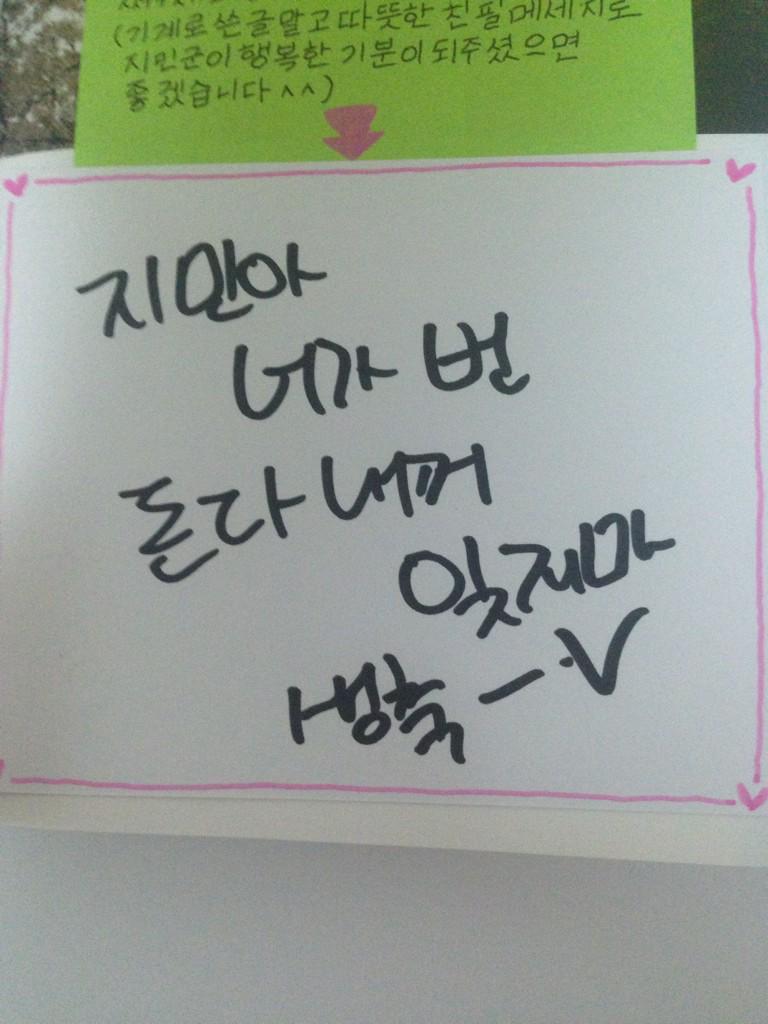 (기계로 쓴 글 말고 따뜻한 친필메세지로
지민군이 행복한 기분이 되주셨으면
좋겠습니다 ^^)
지민아
너가 번
돈 다 내꺼
잊지마
생축 -.V